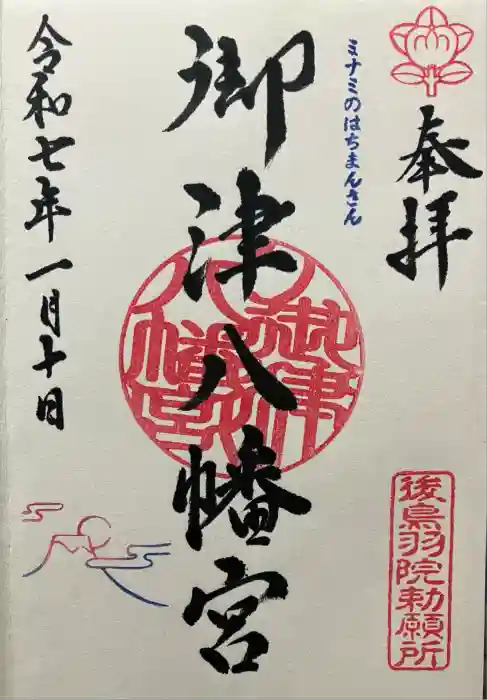 奉拝
ミナミのはちまんさん
御津八幡宮
御津八幡宮
後鳥羽院勅願所
令和七年一月十日